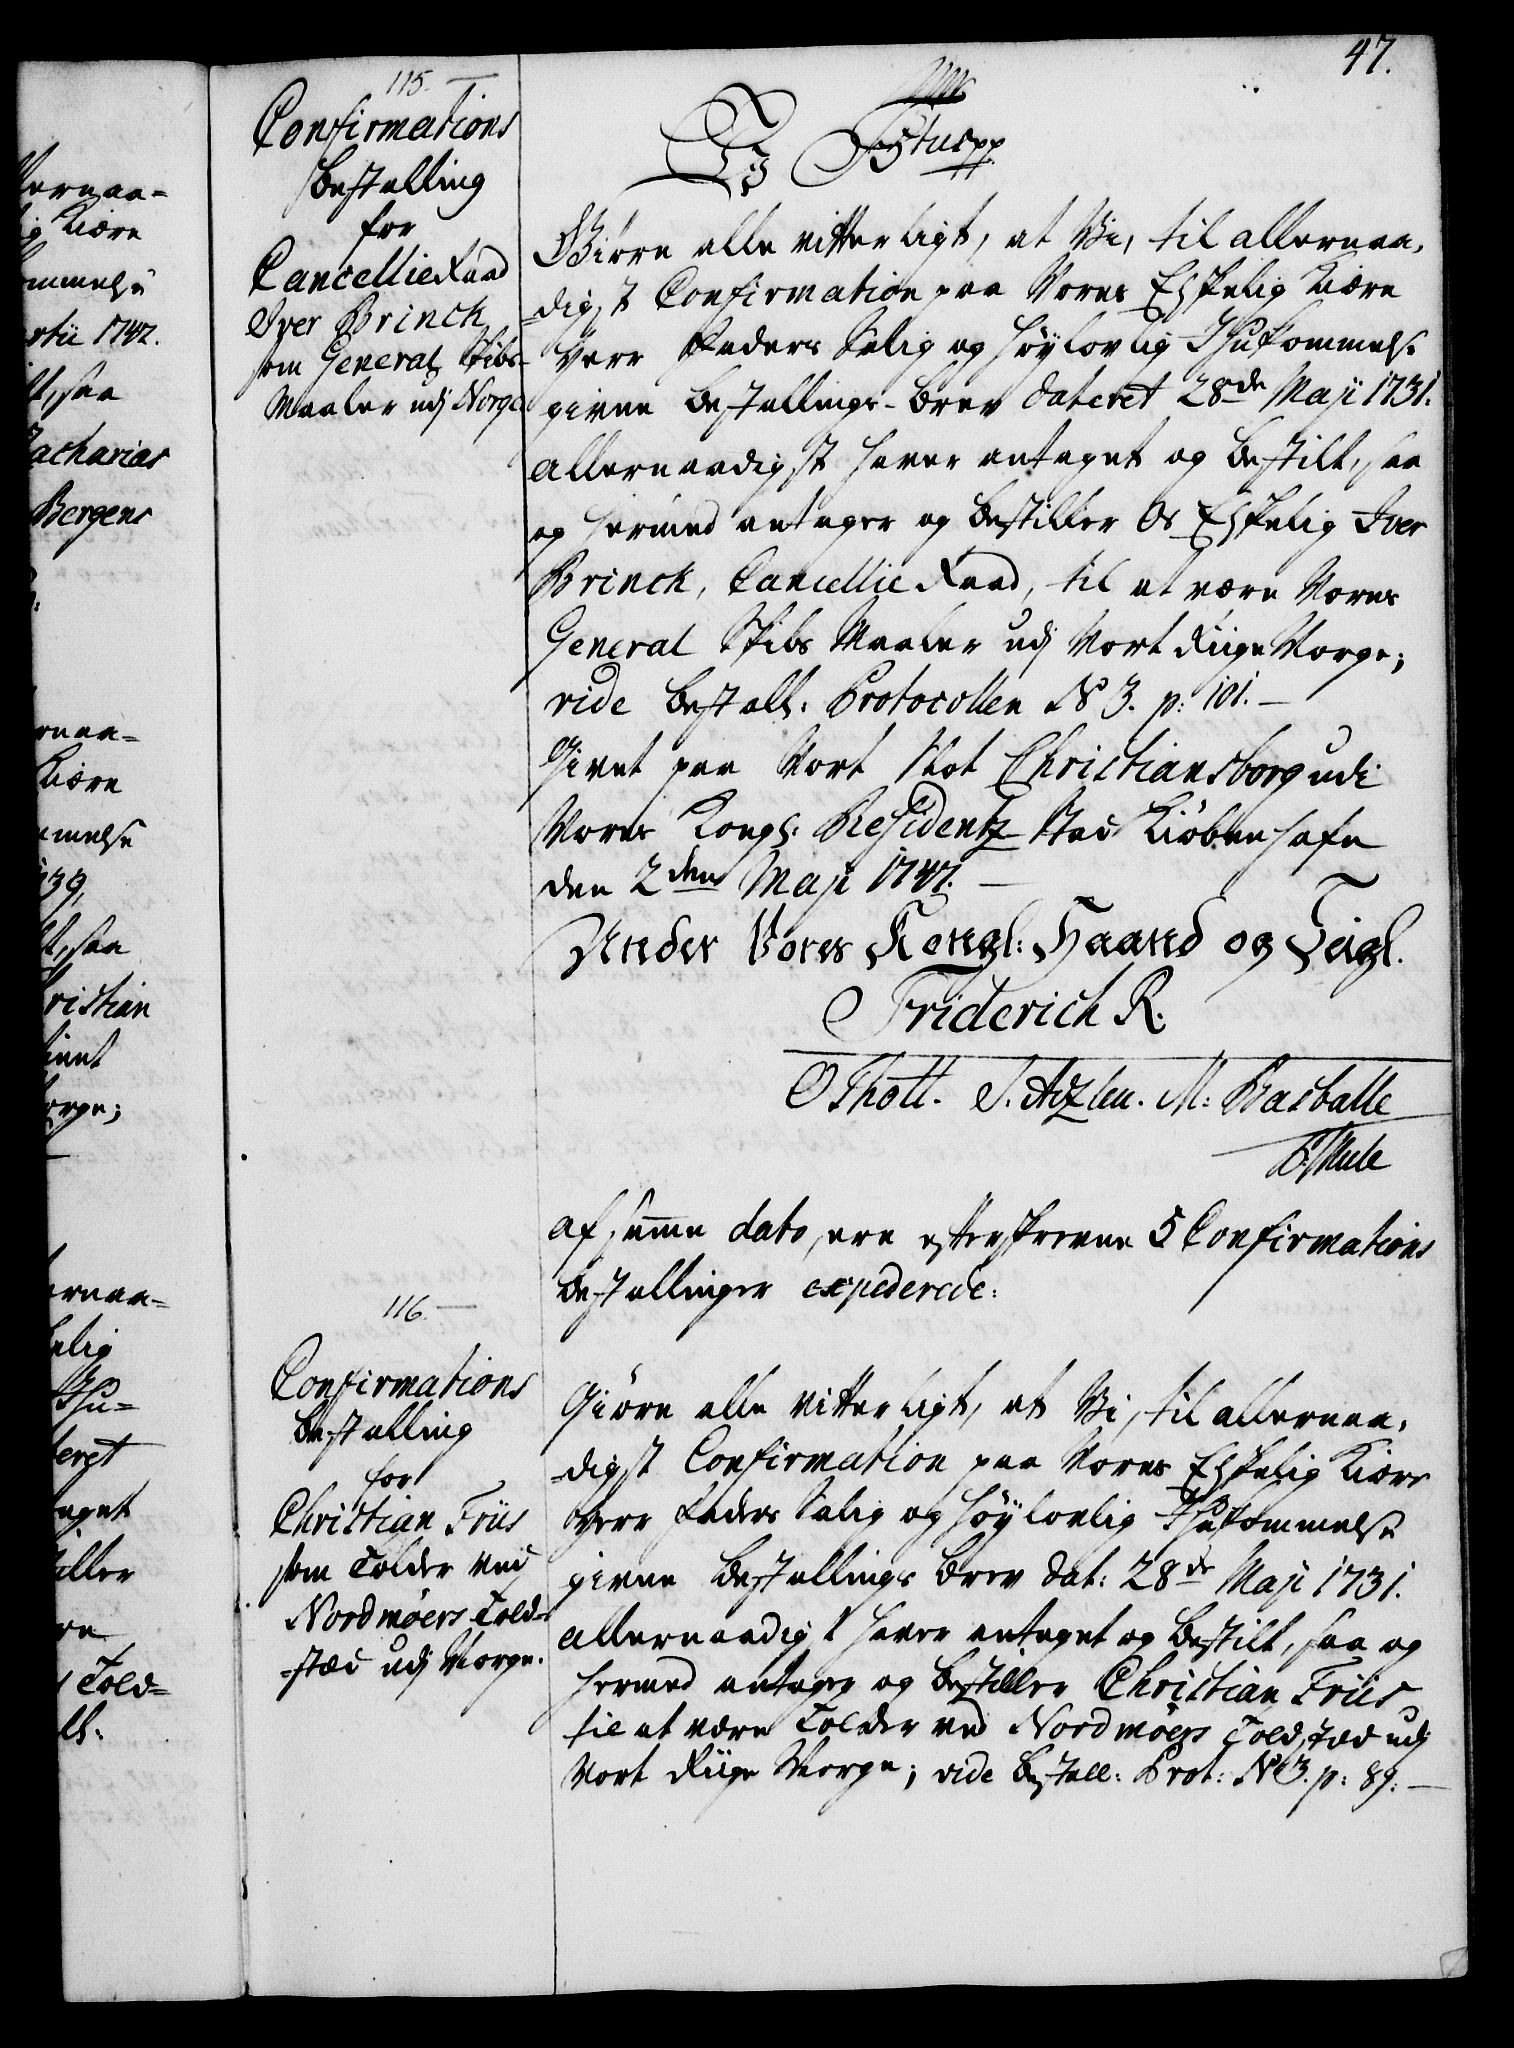 47.
115.
Confirmations
Bestalling
for
Cancellie Raad
Iver Brinck
som General Skibs-
Maaler udj Norge
Vi Ftus pp
Giöre alle vitterligt, at Vi, til allernaa-
digst Confirmation paa Vores Elskelig Kiære
Herr Faders Salig og Höylovlig Ihukommelse
givne Bestallings-Brev dateret 28de Maji 1731.
allernaadigst haver antaget og bestilt, saa
og hermed antager og bestiller Os Elskelig Iver
Brinck, Cancellie Raad, til at være Vores
General Skibs Maaler udj Vort Riige Norge;
vide Bestall: Protocollen No 3. p: 101. —
Givet paa Vort Slot Christiansborg udi
Vores Kongl: Residentz Stad Kiöbenhafn
den 2den Maji 1747. —
Under Vores Kongl: Haand og Seigl.
Friderich R.
O Thott. S. Atzlew. M: Basballe
P: Mule
af samme dato, ere efterskrevne 5 Confirmations
Bestallinger expederede:
116. —
Confirmations
Bestalling
for
Christian Friis
som Tolder ved
Nordmöers Told-
=stæd udj Norge.
Giöre alle vitterligt, at Vi, til allernaa-
digst Confirmation paa Vores Elskelig Kiære
Herr Faders Salig og Höylovlig Ihukommelse
givne Bestallings Brev dat: 28de Maji 1731.
allernaadigst haver antaget og bestilt, saa og
hermed antager og bestiller Christian Friis
til at være Tolder ved Nordmöers Toldstæd udj
Vort Riige Norge; vide Bestall: Prot: No 3. p: 89. —